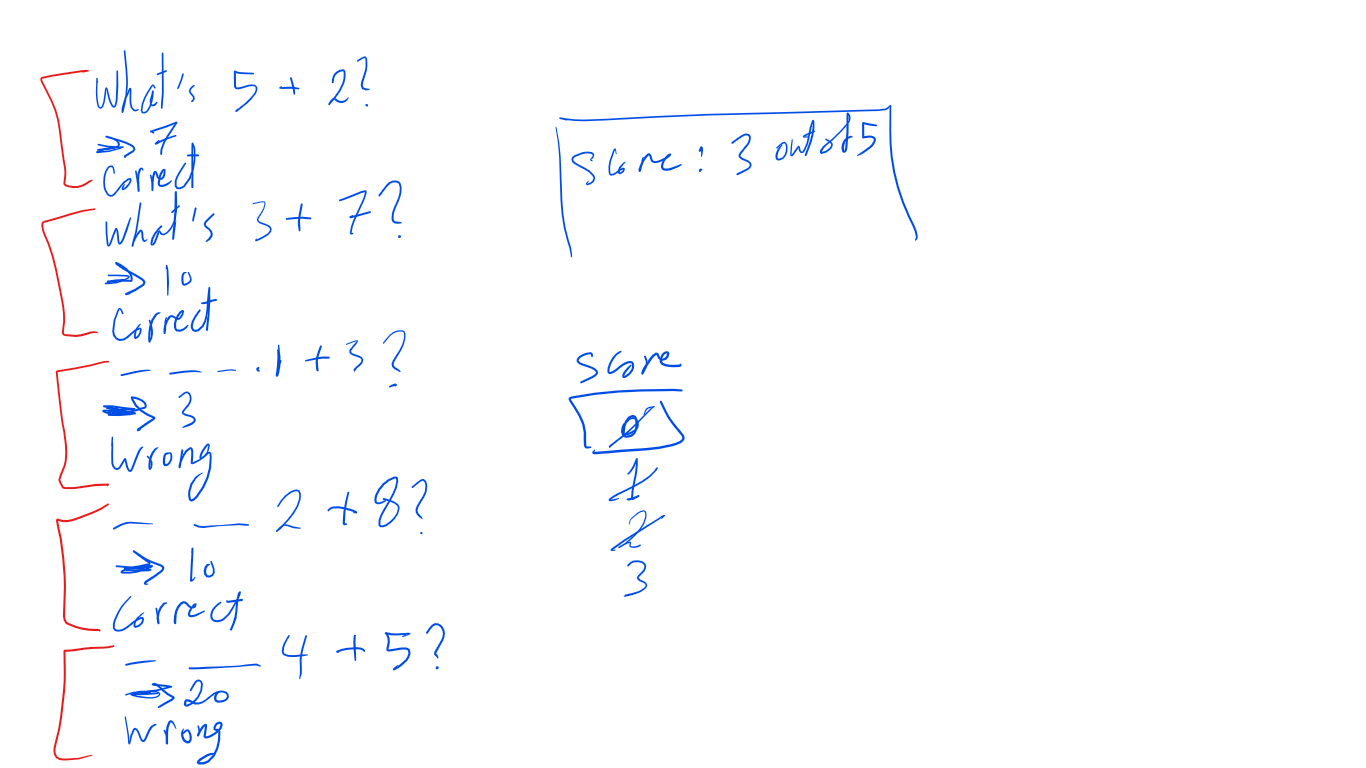 What's 5 + 2?
⇒ 7
Correct
What's 3 + 7?
⇒ 10
Correct
_ _ _ . 1 + 3?
⇒ 3
Wrong
_ _ 2 + 8?
⇒ 10
Correct
_ _ 4 + 5?
⇒ 20
Wrong
Score: 3 out of 5
Score
0
1
2
3